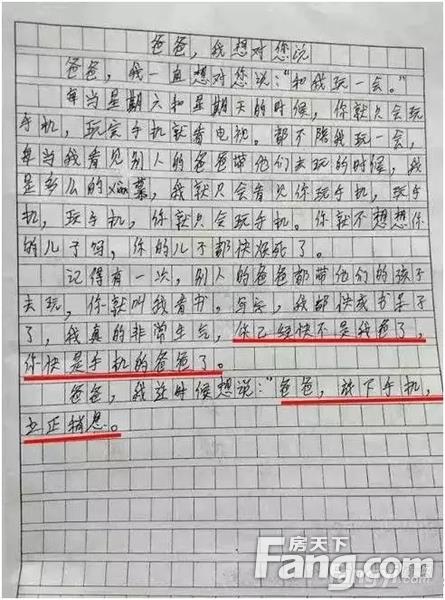 爸爸，我想对您说
爸爸，我一直想对您说：“和我玩一会。”
每当星期六和星期天的时候，你就只会玩
手机，玩完手机就看电视。都不陪我玩一会，
每当我看见别人的爸爸带他们去玩的时候，我
是多么的羡慕，我就只会看见你玩手机，玩手
机，玩手机，你就只会玩手机。你就不想想你
的儿子吗，你的儿子都快烦死了。
记得有一次，别人的爸爸都带他们的孩子
去玩，你就叫我看书。写字，我都快成书呆子
了，我真的非常生气，你已经快不是我爸了，
你快是手机的爸爸了。
爸爸，我这时候想说：“爸爸，放下手机，
立正稍息。
房天下
Fang.com